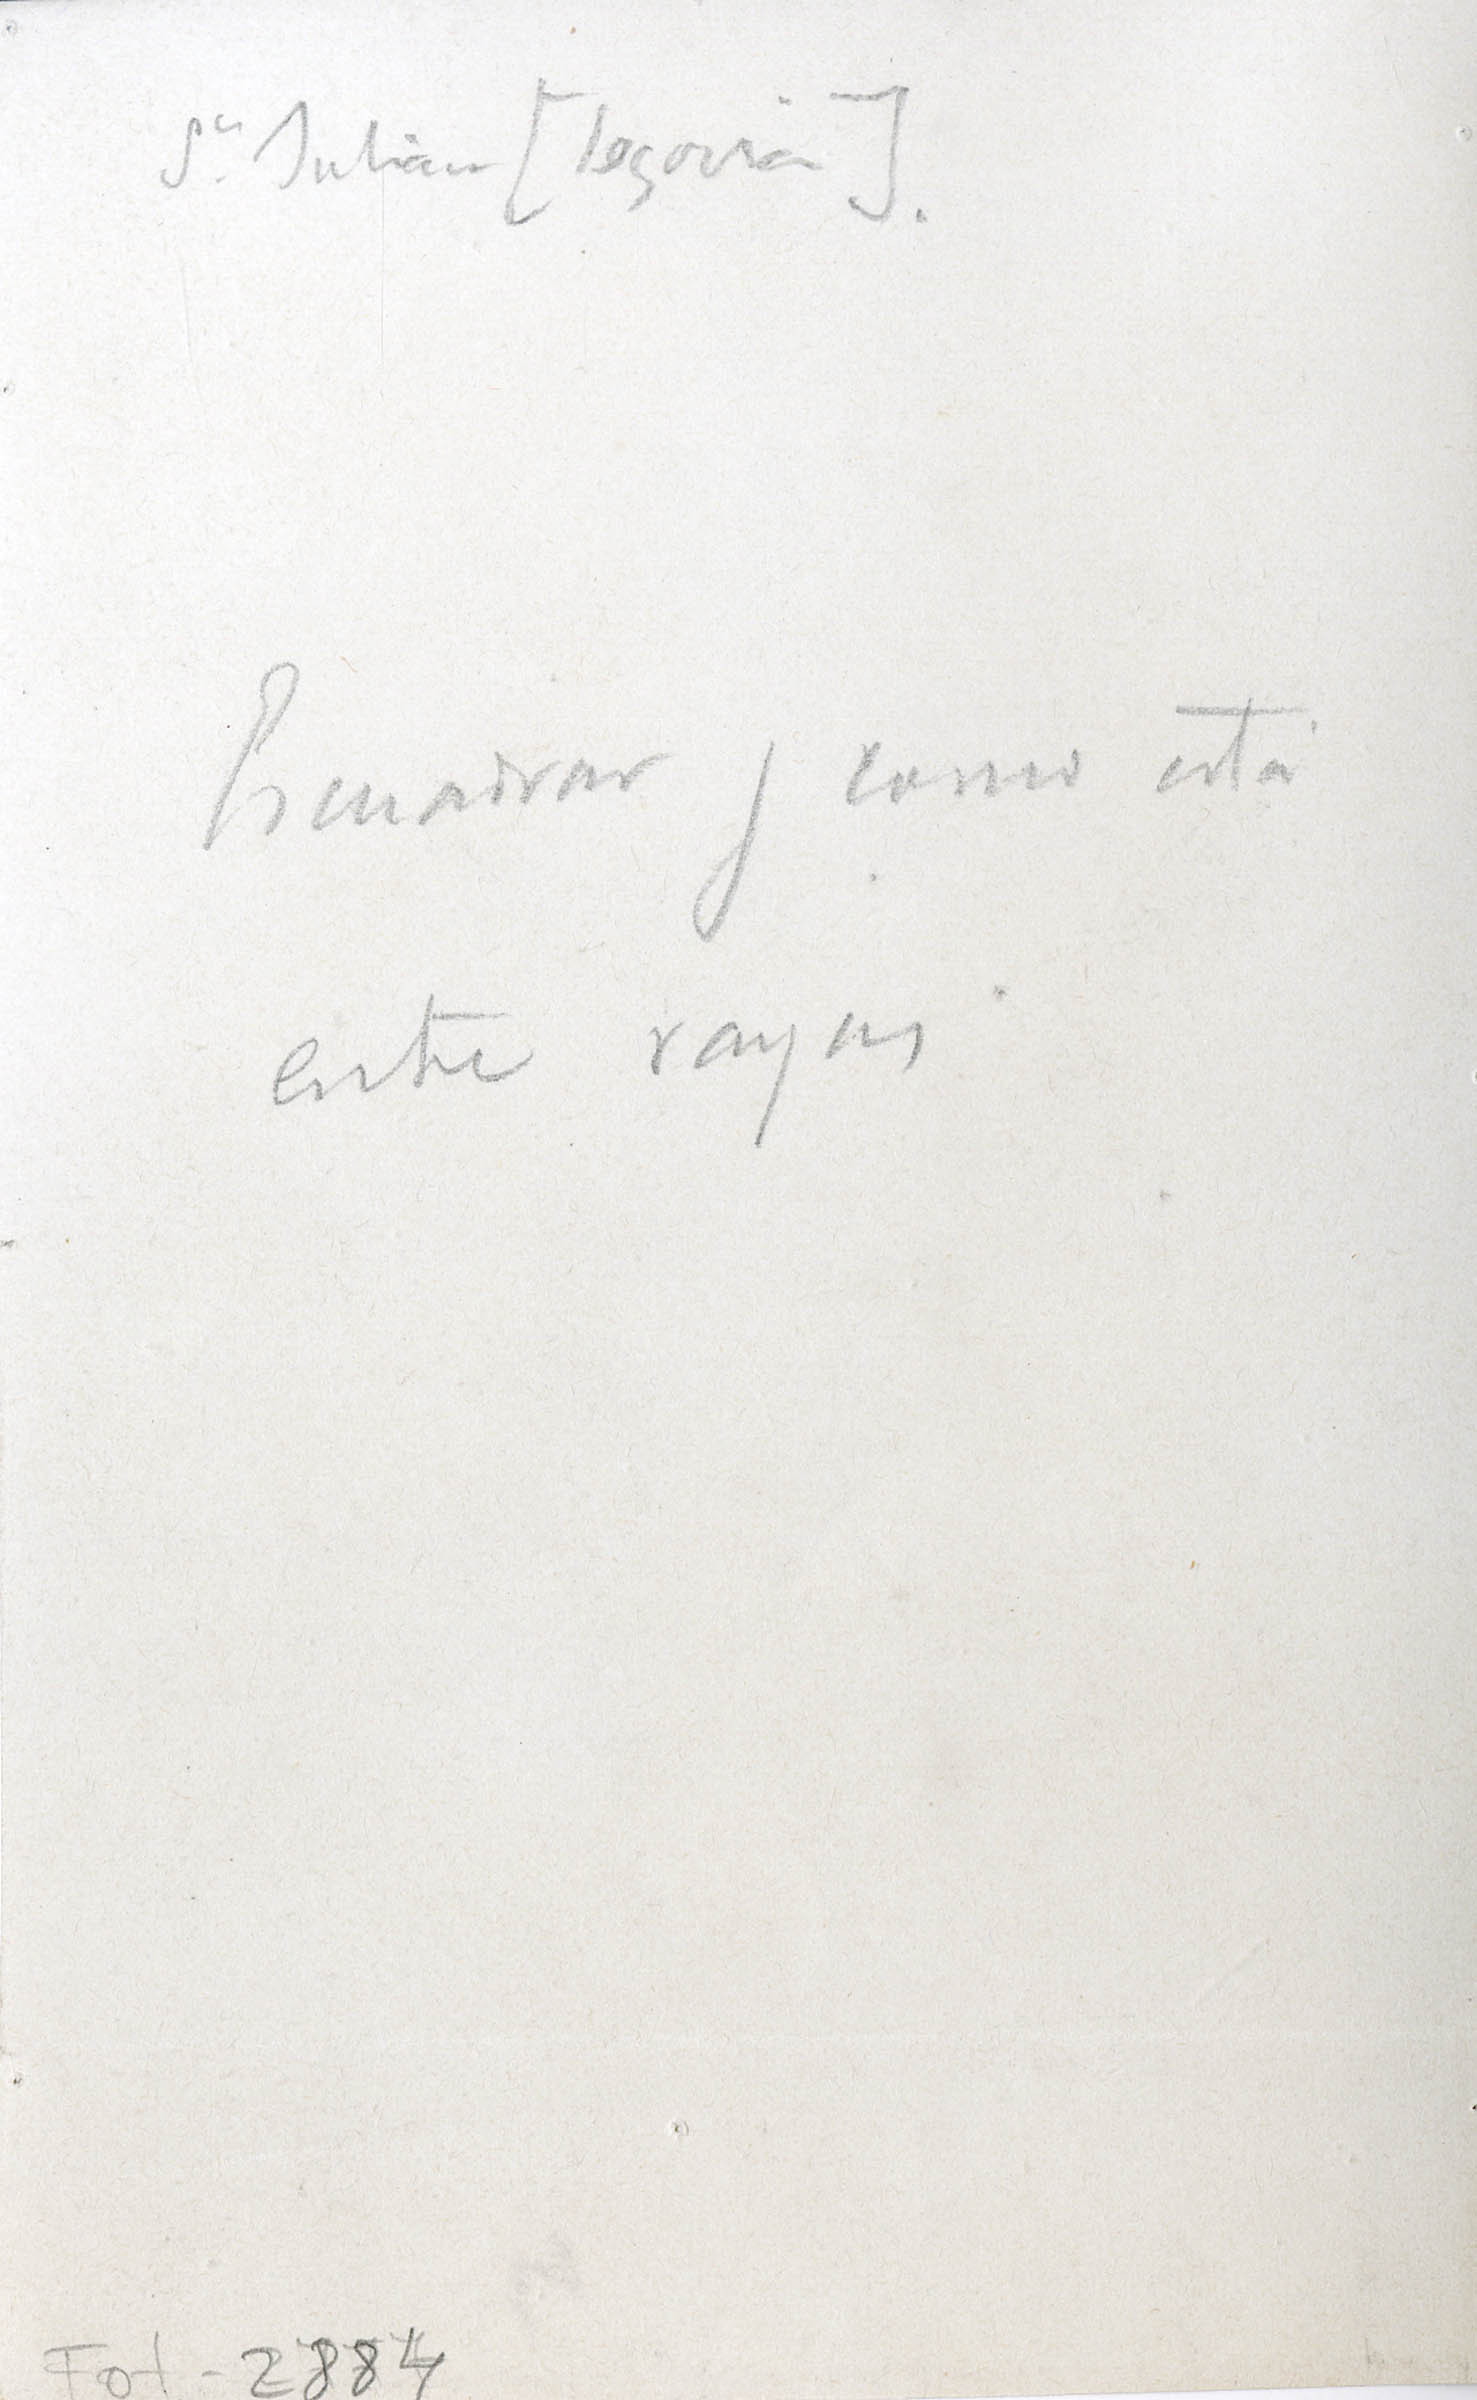 Sn. Julian [Segovia].
Encuadrar y como está
entre rayas
Fot-2884